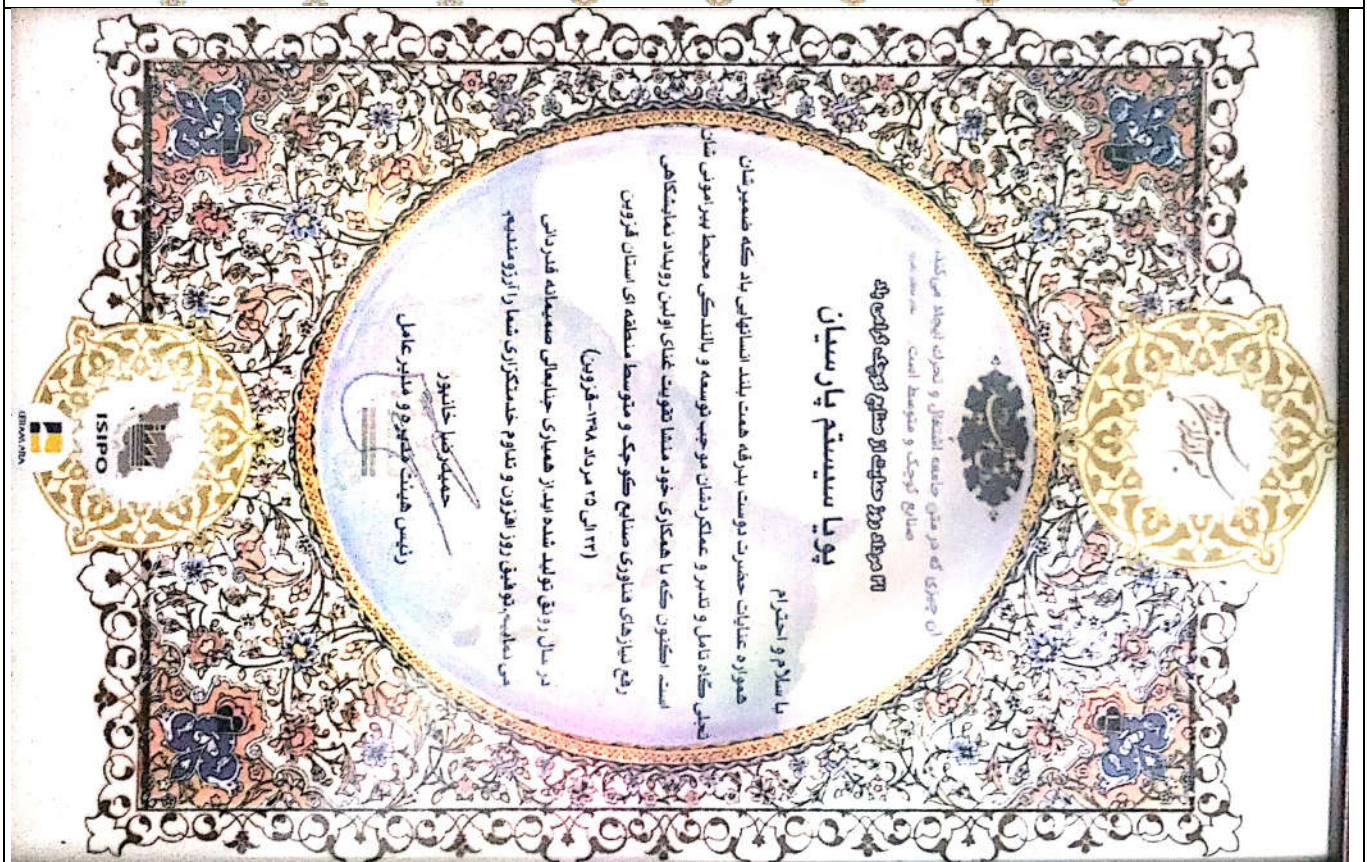 آن چیزی که در متن جامعه اشتغال و تحرک ایجاد می‌کند،
صنایع کوچک و متوسط است
۲۱ مرداد روز حمایت از صنایع کوچک گرامی باد
پویا سیستم پارسیان
با سلام و احترام
همواره عنایات حضرت دوست بدرقه همت بلند انسانهایی باد که ضمیرشان
تجلی گاه تامل و تدبر و عملکردشان موجب توسعه و بالندگی محیط پیرامونی شان
است. اکنون که با همکاری خود منشا تقویت غنای اولین رویداد نمایشگاهی
رفع نیازهای فناوری صنایع کوچک و متوسط منطقه ای استان قزوین
(۲۳ الی ۲۵ مرداد ۱۳۹۸-قزوین)
در سال رونق تولید شده اید از همیاری جنابعالی صمیمانه قدردانی
می نماید. توفیق روز افزون و تداوم خدمتگزاری شما را آرزومندیم.
حمیدرضا خانپور
رئیس هیئت مدیره و مدیر عامل
ISIPO